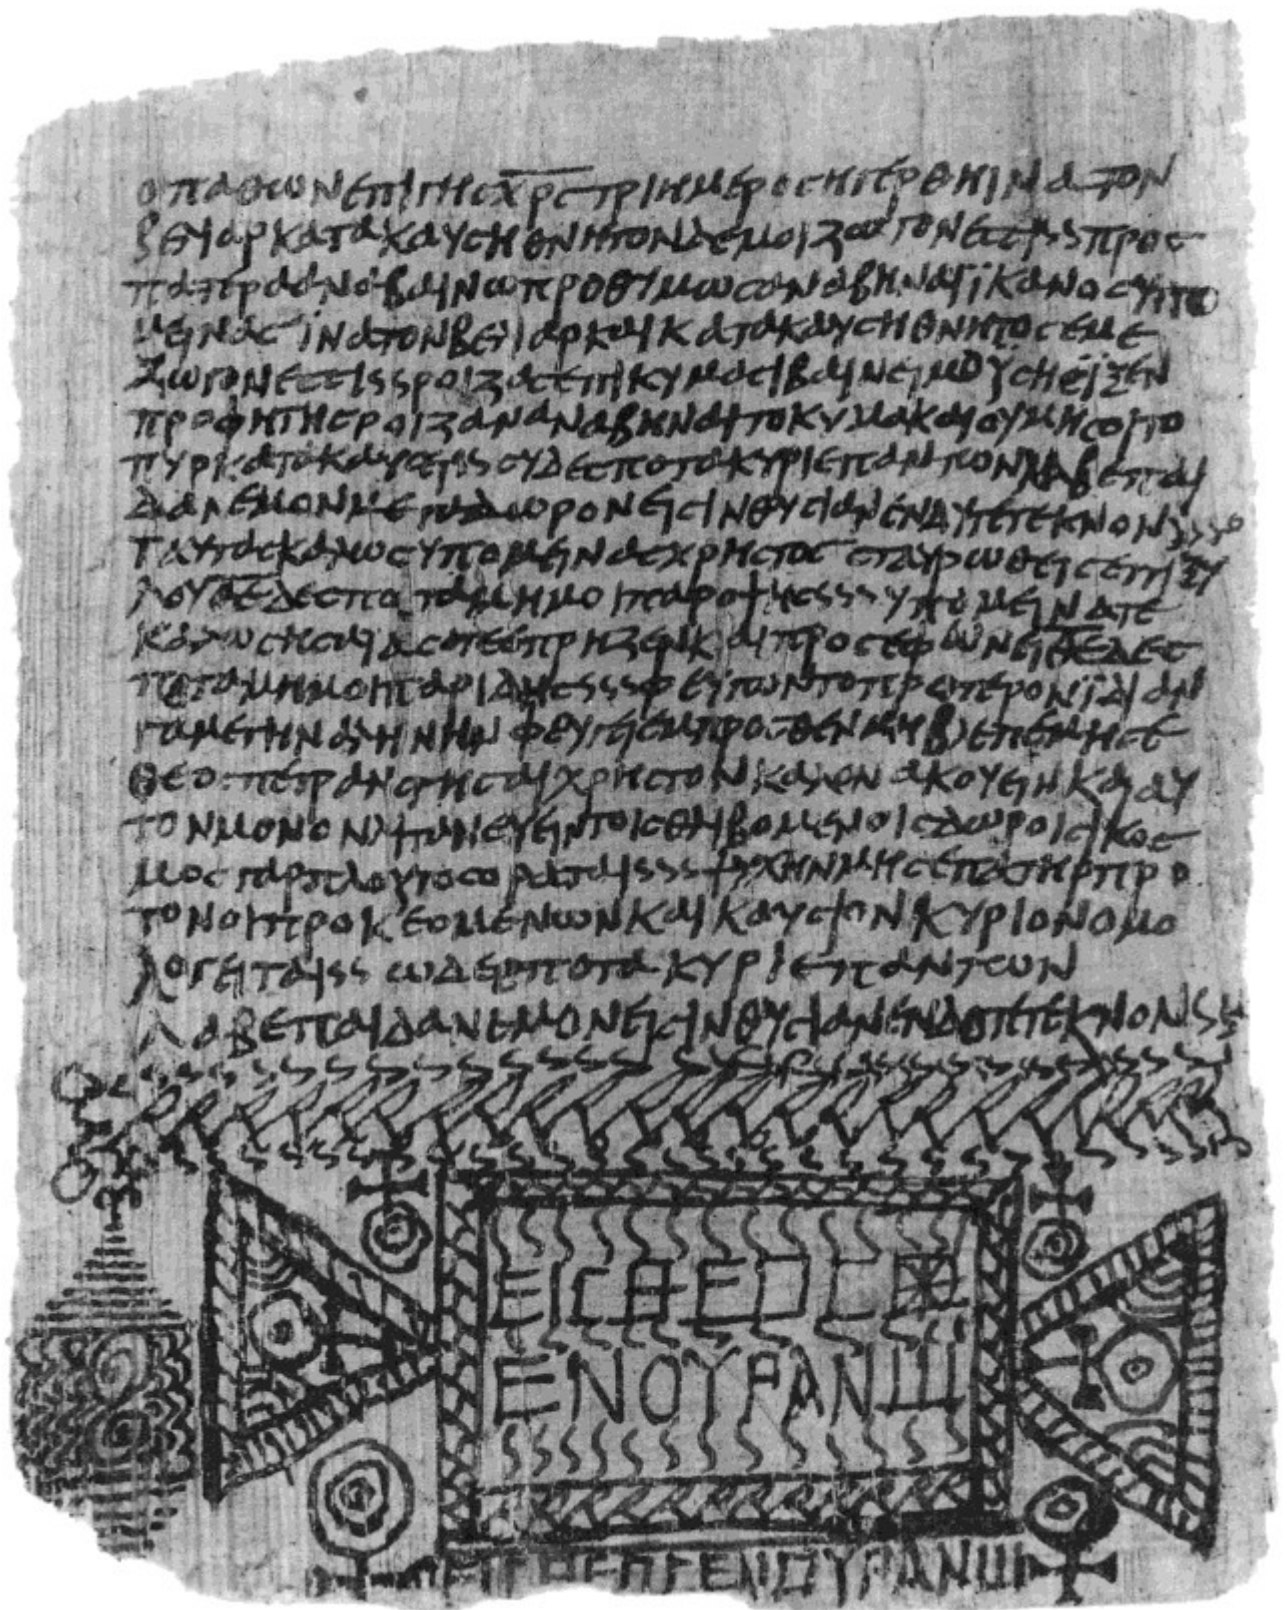 ΟΠΑΘΩΝΕΠΙΓΗϹΧΡϹΤΡΙΗΜΕΡΟϹΗΓΕΡΘΗΙΝΑΤΟΝ
ΒΕΛΙΑΡΚΑΤΑΚΑΥϹΗΘΝΗΤΟΝΔΕΜΟΙΖΩΓΟΝΕϹϹΙϹϹΠΡΟϹ
ΠΑΤΕΡΑΑΝΑΒΑΙΝΩΠΡΟΘΙΜΩϹΑΝΑΒΗΝΑΙΪΚΑΝΟϹΥΠΟ
ΜΕΙΝΑϹΙΝΑΤΟΝΒΕΛΙΑΡΚΑΙΚΑΤΑΚΑΥϹΗΘΝΗΤΟϹΕΜΕ
ΖΩΓΟΝΕϹϹΙϹϹΡΟΙΖΑϹΕΠΙΚΥΜΑϹΙΒΑΙΝΕΙΜΟΥϹΗ
ΠΡΟΦΗΤΗϹΡΟΙΖΑΝΑΝΑΒΗΝΑΙΤΟΚΥΜΑΚΑΙΟΥΜΗϹΟΙΤΟ
ΠΥΡΙΚΑΤΑΚΑΥϹΕΙϹϹΟΥΔΕϹΠΟΤΑΚΥΡΙΕΠΑΝΤΩΝΛΑΒΕΠΑΙ
ΔΑΝΕΜΟΝΜΕΓΑΔΩΡΟΝΕΙϹΙΝΘΥϹΙΑΝΕΝΔΥΤΕΤΕΚΝΟΝϹϹϹΟ
ΤΑΥΤΑϹΚΑΛΩϹΥΠΟΜΕΙΝΑϹΧΡΗϹΤΟϹϹΤΑΥΡΩΘΕΙϹΕΠΙΞΥ
ΛΟΥΘΕΔΕϹΠΟΤΑΜΗΜΟΙΠΑΡΟΨΗϹϹϹϹΥΠΟΜΕΙΝΑΤΕ
ΚΑΙΠΡΟϹΕΦΩΝΕΙΘΕΔΕϹ
ΠΟΤΑΜΗΜΟΙΠΑΡΙΔΗϹϹϹϹΦΕΙΠΩΝΤΟΠΡΩΤΕΡΟΝΪΔΙΑΝ
ΦΕΥΓΕΕΜΠΡΟϹΘΕΝΜΗΒΛΕΠΕΜΗϹΕ
ΘΕΟϹΠΕΤΡΑΝϹΤΗϹΤΑΙΧΡΗϹΤΟΝΚΑΛΟΝΑΚΟΥΕΙΝΚΑΙΑΥ
ΤΟΝΜΟΝΟΝΛΙΠΑΝΕΥΕΙΝΤΟΙϹΘΛΙΒΟΜΕΝΟΙϹΔΩΡΟΙϹΙΚΟϹ
ΜΟϹΓΑΡΠΛΟΥΤΟϹΟΡΑΤΑΙϹϹϹΨΥΧΗΝΜΗϹΕΠΑΤΗΡΠΡΟ
ΤΟΝΟΙΠΡΟΚΕΟΜΕΝΩΝΚΑΙΚΑΥϹΙΟΝΚΥΡΙΟΝΟΜΟ
ΛΟΓΕΙΤΑΙϹϹΩΔΕϹΠΟΤΑΚΥΡΙΕΠΑΝΤΩΝ
ΛΑΒΕΠΑΙΔΑΝΕΜΟΝΕΙϹΙΝΘΥϹΙΑΝΕΝΔΟΤΕΤΕΚΝΟΝϹϹ
ΕΙϹΘΕΟϹ
ΕΝΟΥΡΑΝΩ
ΕΙϹΘΕΟϹΕΝΟΥΡΑΝΩ